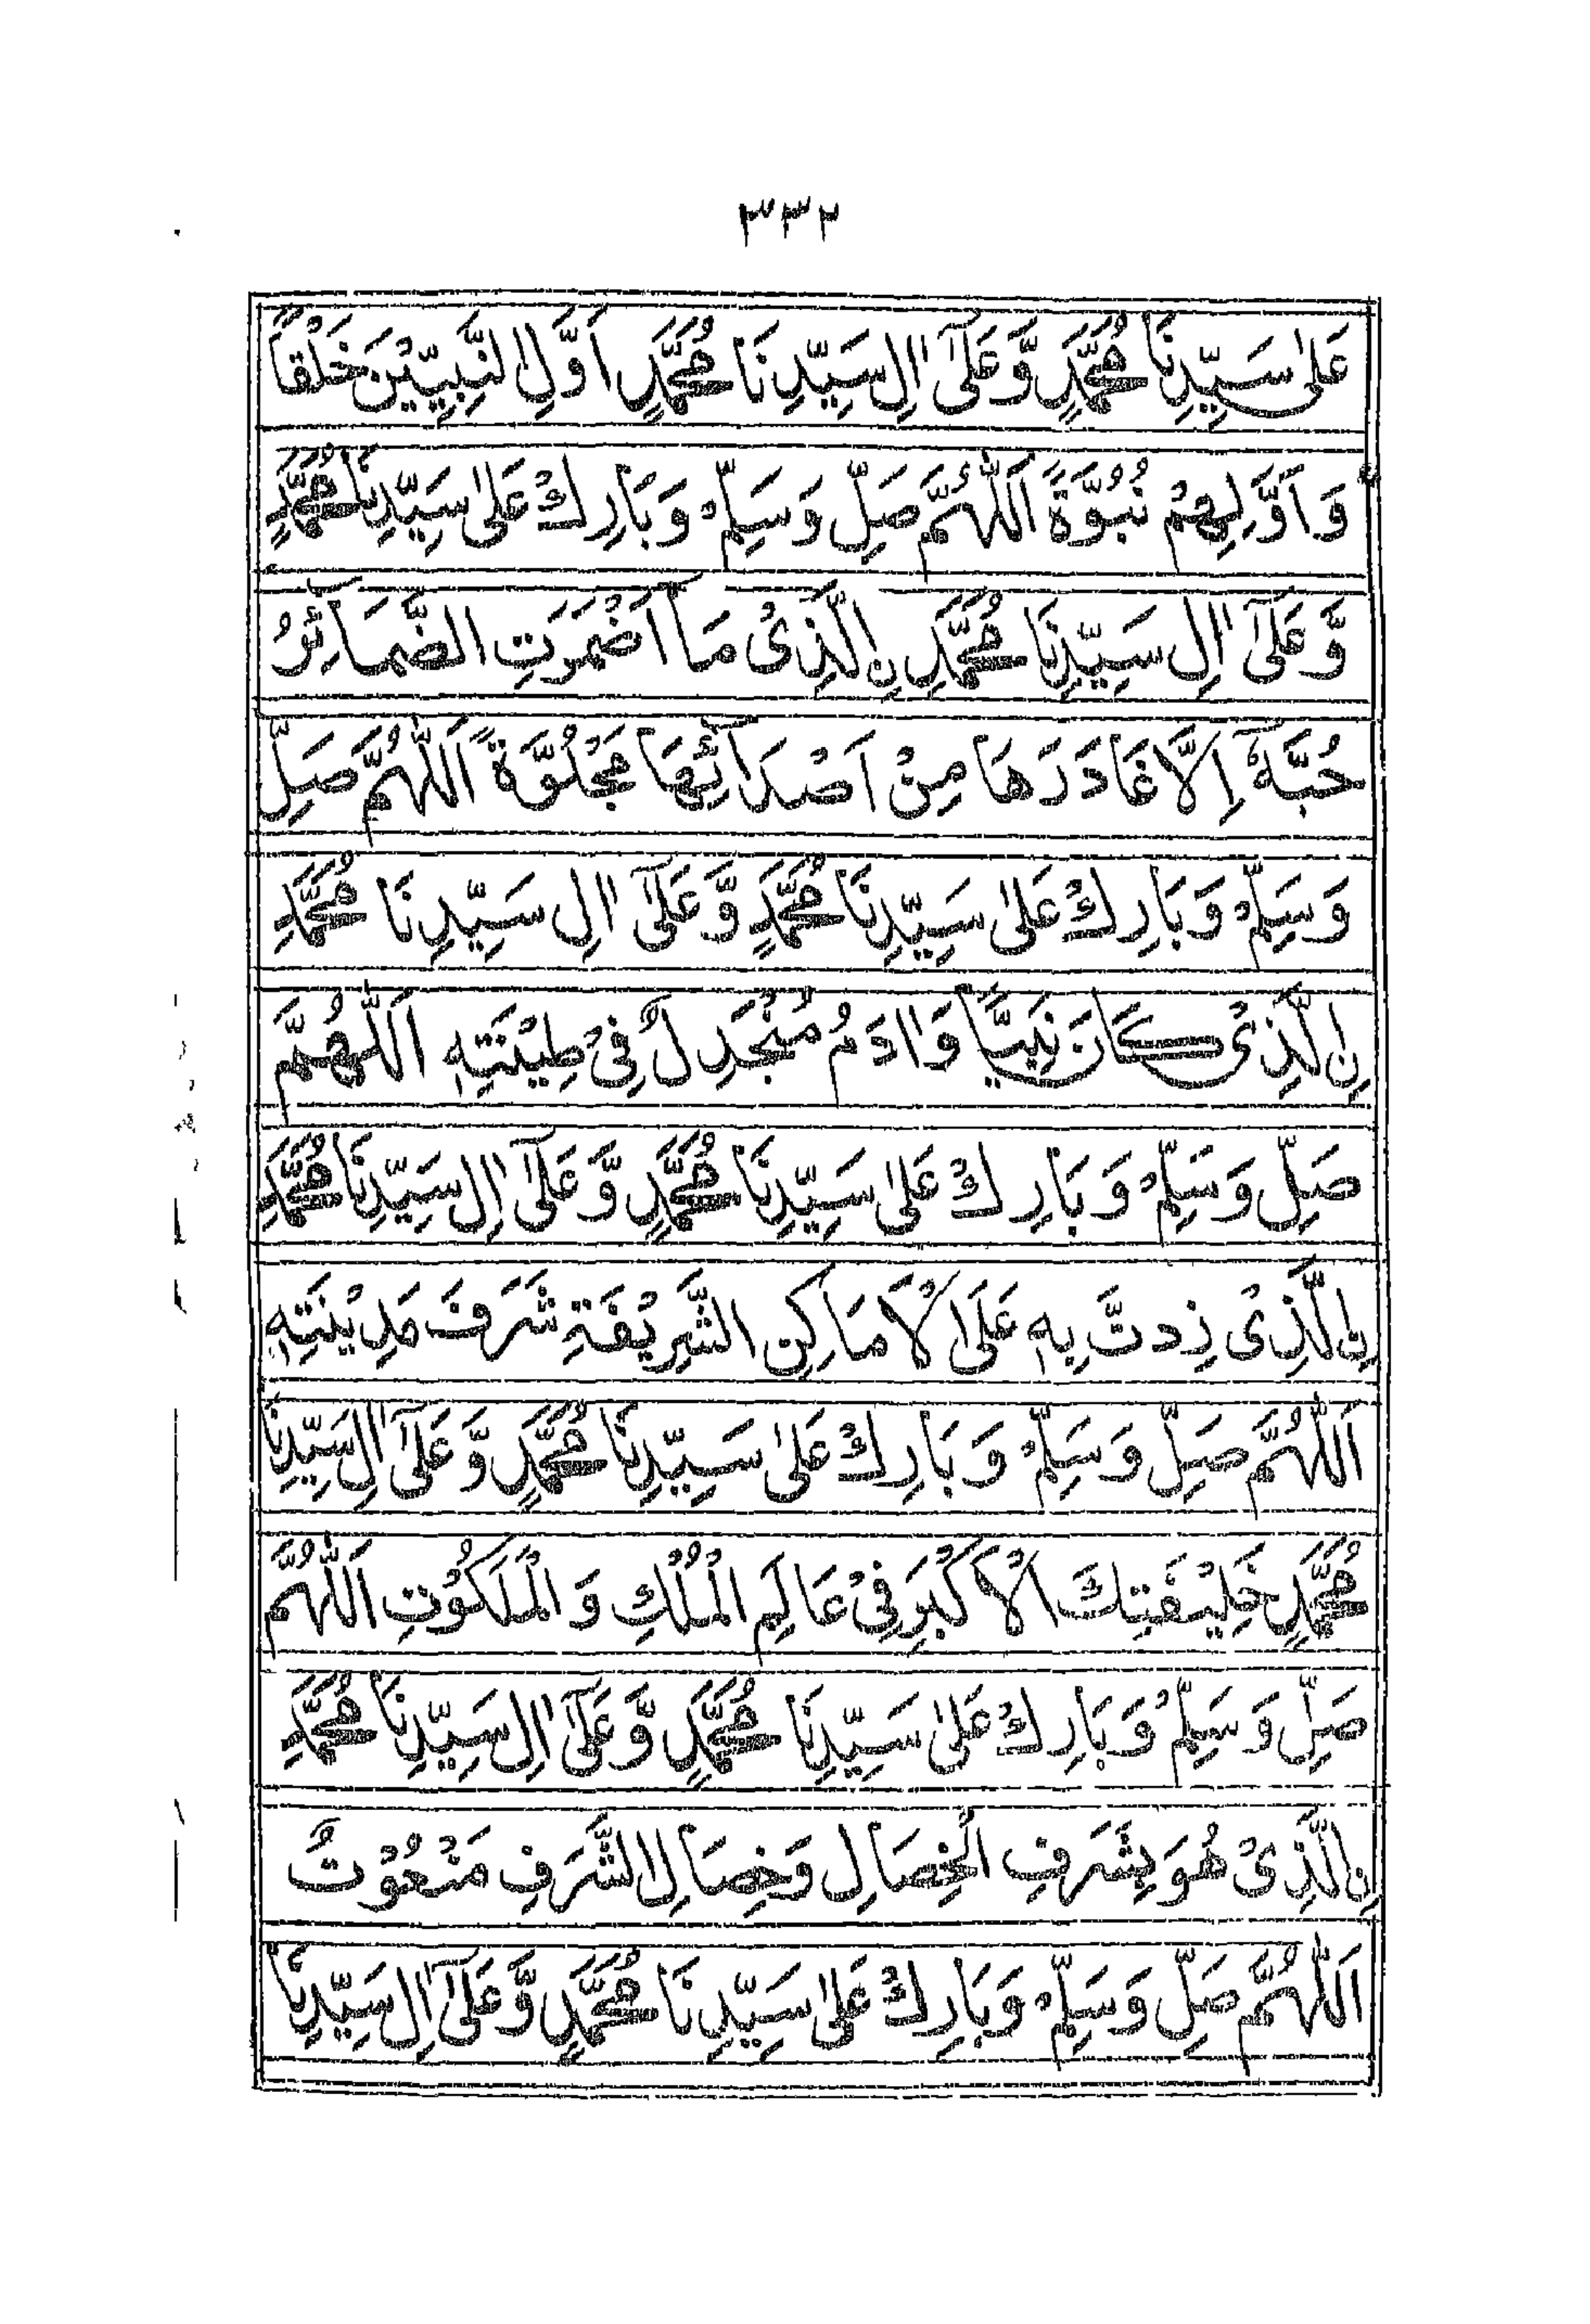 ٣٣٢
عَلٰى سَيِّدِنَا مُحَمَّدٍ وَّعَلٰٓى اٰلِ سَيِّدِنَا مُحَمَّدٍ اَوَّلِ النَّبِيِّيْنَ خَلْقًا
وَاَوَّلِهِمْ نُبُوَّةً اَللّٰهُمَّ صَلِّ وَسَلِّمْ وَبَارِكْ عَلٰى سَيِّدِنَا مُحَمَّدٍ
وَّعَلٰٓى اٰلِ سَيِّدِنَا مُحَمَّدِ نِ الَّذِىْ مَا اَضْمَرَتِ الضَّمَآئِرُ
حُبَّهٗٓ اِلَّا غَادَرَهَا مِنْ اَصْدَآئِهَا مَجْلُوَّةً اَللّٰهُمَّ صَلِّ
وَسَلِّمْ وَبَارِكْ عَلٰى سَيِّدِنَا مُحَمَّدٍ وَّعَلٰٓى اٰلِ سَيِّدِنَا مُحَمَّدِ
نِ الَّذِىْ كَانَ نَبِيًّا وَاٰدَمُ مُنْجَدِلٌ فِىْ طِيْنَتِهٖ اَللّٰهُمَّ
صَلِّ وَسَلِّمْ وَبَارِكْ عَلٰى سَيِّدِنَا مُحَمَّدٍ وَّعَلٰٓى اٰلِ سَيِّدِنَا مُحَمَّدِ
نِ الَّذِىْ زِدتَّ بِهٖ عَلَى الْاَمَاكِنِ الشَّرِيْفَةِ شَرَفَ مَدِيْنَتِهٖ
اَللّٰهُمَّ صَلِّ وَسَلِّمْ وَبَارِكْ عَلٰى سَيِّدِنَا مُحَمَّدٍ وَّعَلٰٓى اٰلِ سَيِّدِنَا
مُحَمَّدٍ خَلِيْفَتِكَ الْاَكْبَرِ فِىْ عَالَمِ الْمُلْكِ وَالْمَلَكُوْتِ اَللّٰهُمَّ
صَلِّ وَسَلِّمْ وَبَارِكْ عَلٰى سَيِّدِنَا مُحَمَّدٍ وَّعَلٰٓى اٰلِ سَيِّدِنَا مُحَمَّدِ
نِ الَّذِىْ هُوَ بِشَرَفِ الْخِصَالِ وَخِصَالِ الشَّرَفِ مَنْعُوْتٌ
اَللّٰهُمَّ صَلِّ وَسَلِّمْ وَبَارِكْ عَلٰى سَيِّدِنَا مُحَمَّدٍ وَّعَلٰٓى اٰلِ سَيِّدِنَا